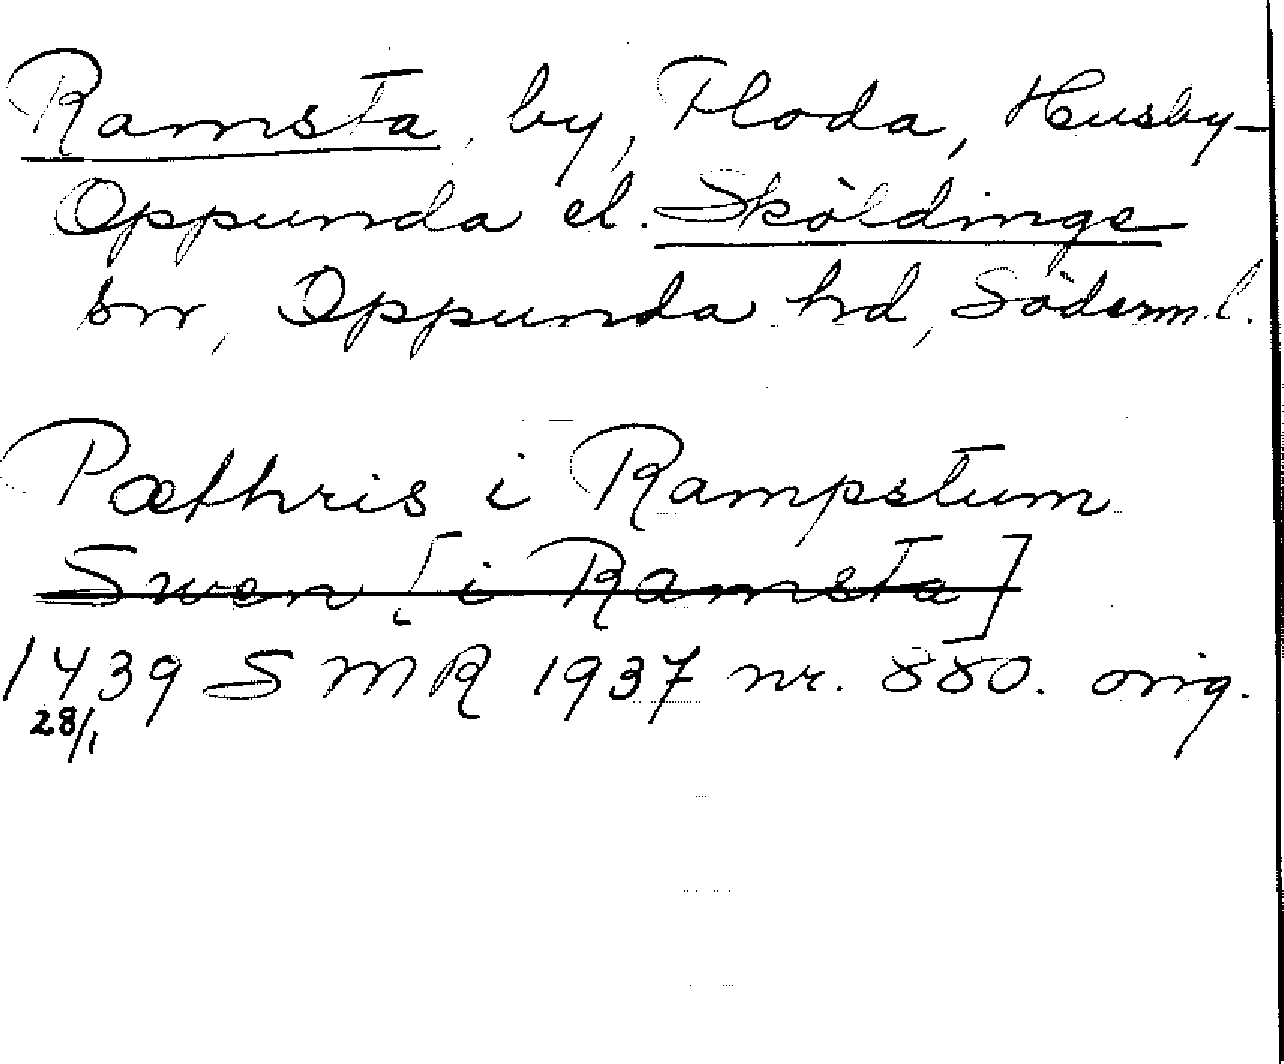 Ramsta, by, Floda, Husby-
Oppunda el. Sköldinge
snr, Oppunda hd, Söderm.l.
Pæthris i Rampstum
Swen [i Ramsta]
1439 SMR 1937 nr. 880. orig.
28/1